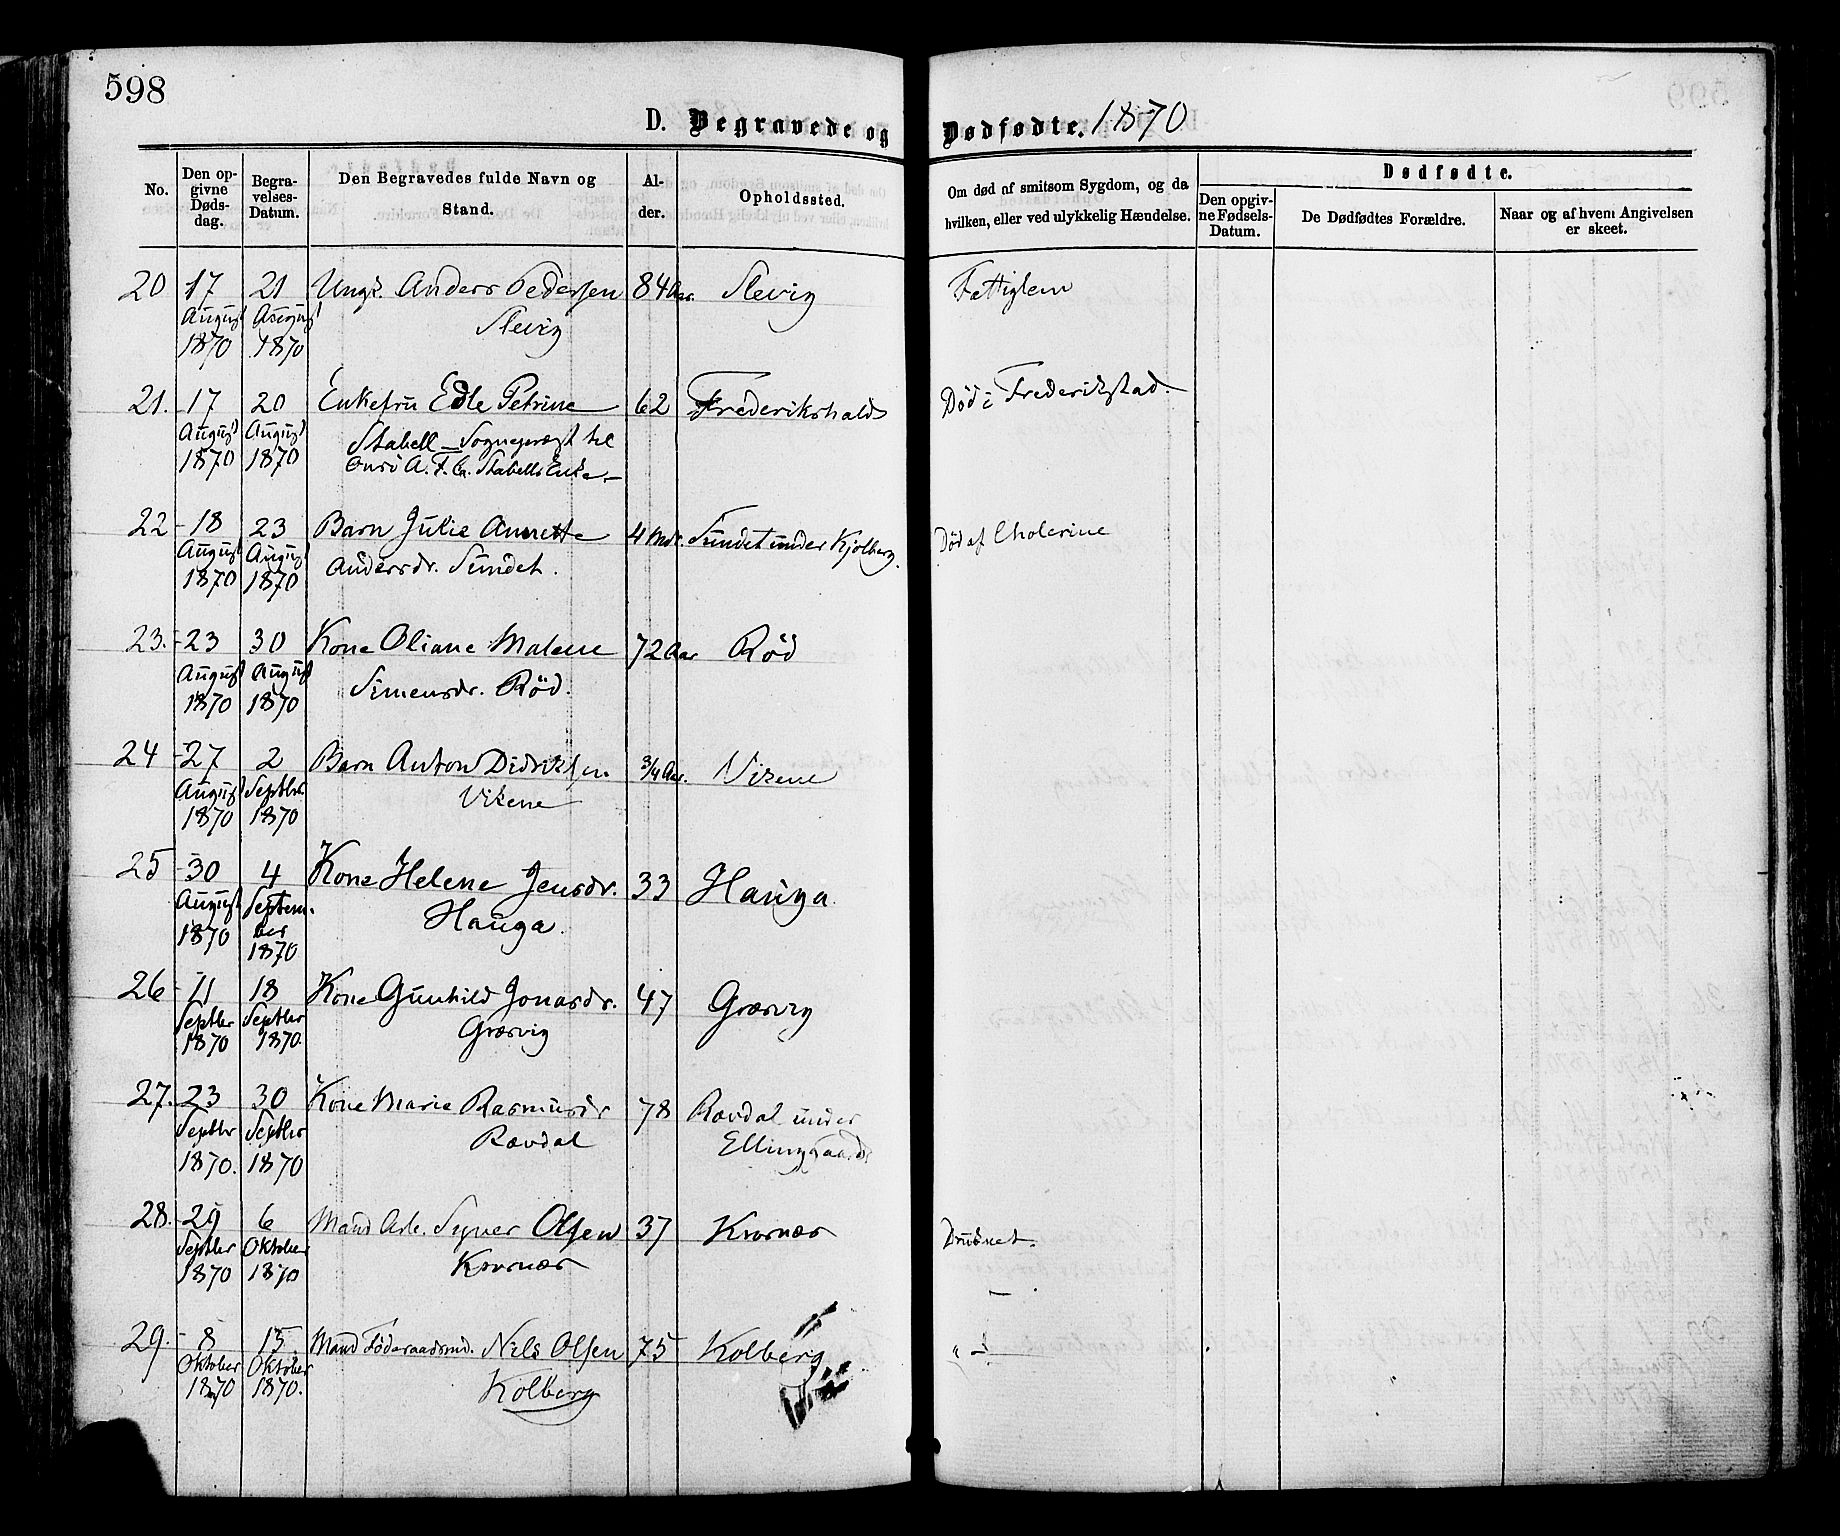 598
D. Begravede og Dødfødte. 1870
No.
Den opgivne Dødsdag.
Begravelses-Datum.
Den Begravedes fulde Navn og Stand.
Alder.
Opholdssted.
Om død af smitsom Sygdom, og da hvilken, eller ved ulykkelig Hændelse.
Dødfødte.
Den opgivne Fødsels-Datum.
De Dødfødtes Forældre.
Naar og af hvem Angivelsen er skeet.
20 17 21 Ungk. Anders Pedersen 84 Aar. Slevig Fattiglem
August August Slevig
1870 1870
21. 17 20 Enkefru Edle Petrine 62 Frederikshald Död i Frederikstad.
August August Stabell – Sognepræst til
1870 1870 Onsö A. F. G. Stabells Enke –
22 18 23 Barn Julie Annette 4 Mdr. Sundet under Kjölberg. Död af Cholerine
August August Andersdr. Sundet.
1870 1870
23. 23 30 Kone Oliane Malene 72 Aar Röd
August August Simensdr. Röd.
1870 1870
24 27 2 Barn Anton Didriksen 3/4 Aar. Vikene
August Septbr Vikene
1870 1870
25 30 4 Kone Helene Jensdr. 33 Hauga.
August Septem- Hauga.
1870 ber
1870
26 11 18 Kone Gunhild Jonasdr. 47 Græsvig
Septbr Septbr Græsvig
1870 1870.
27. 23 30 Kone Marie Rasmusdr 78 Rævdal under
Septbr Septbr Rævdal Ellinggaard
1870. 1870
28. 29 6 Mand Arb. Syver Olsen 37 Kvernær Druknet.
Septbr Oktober Kvernær
1870 1870
29. 8 15 Mand Föderaadsmd. Nils Olsen 75 Kolberg " –
Oktober Oktober Kolberg
1870 1870.